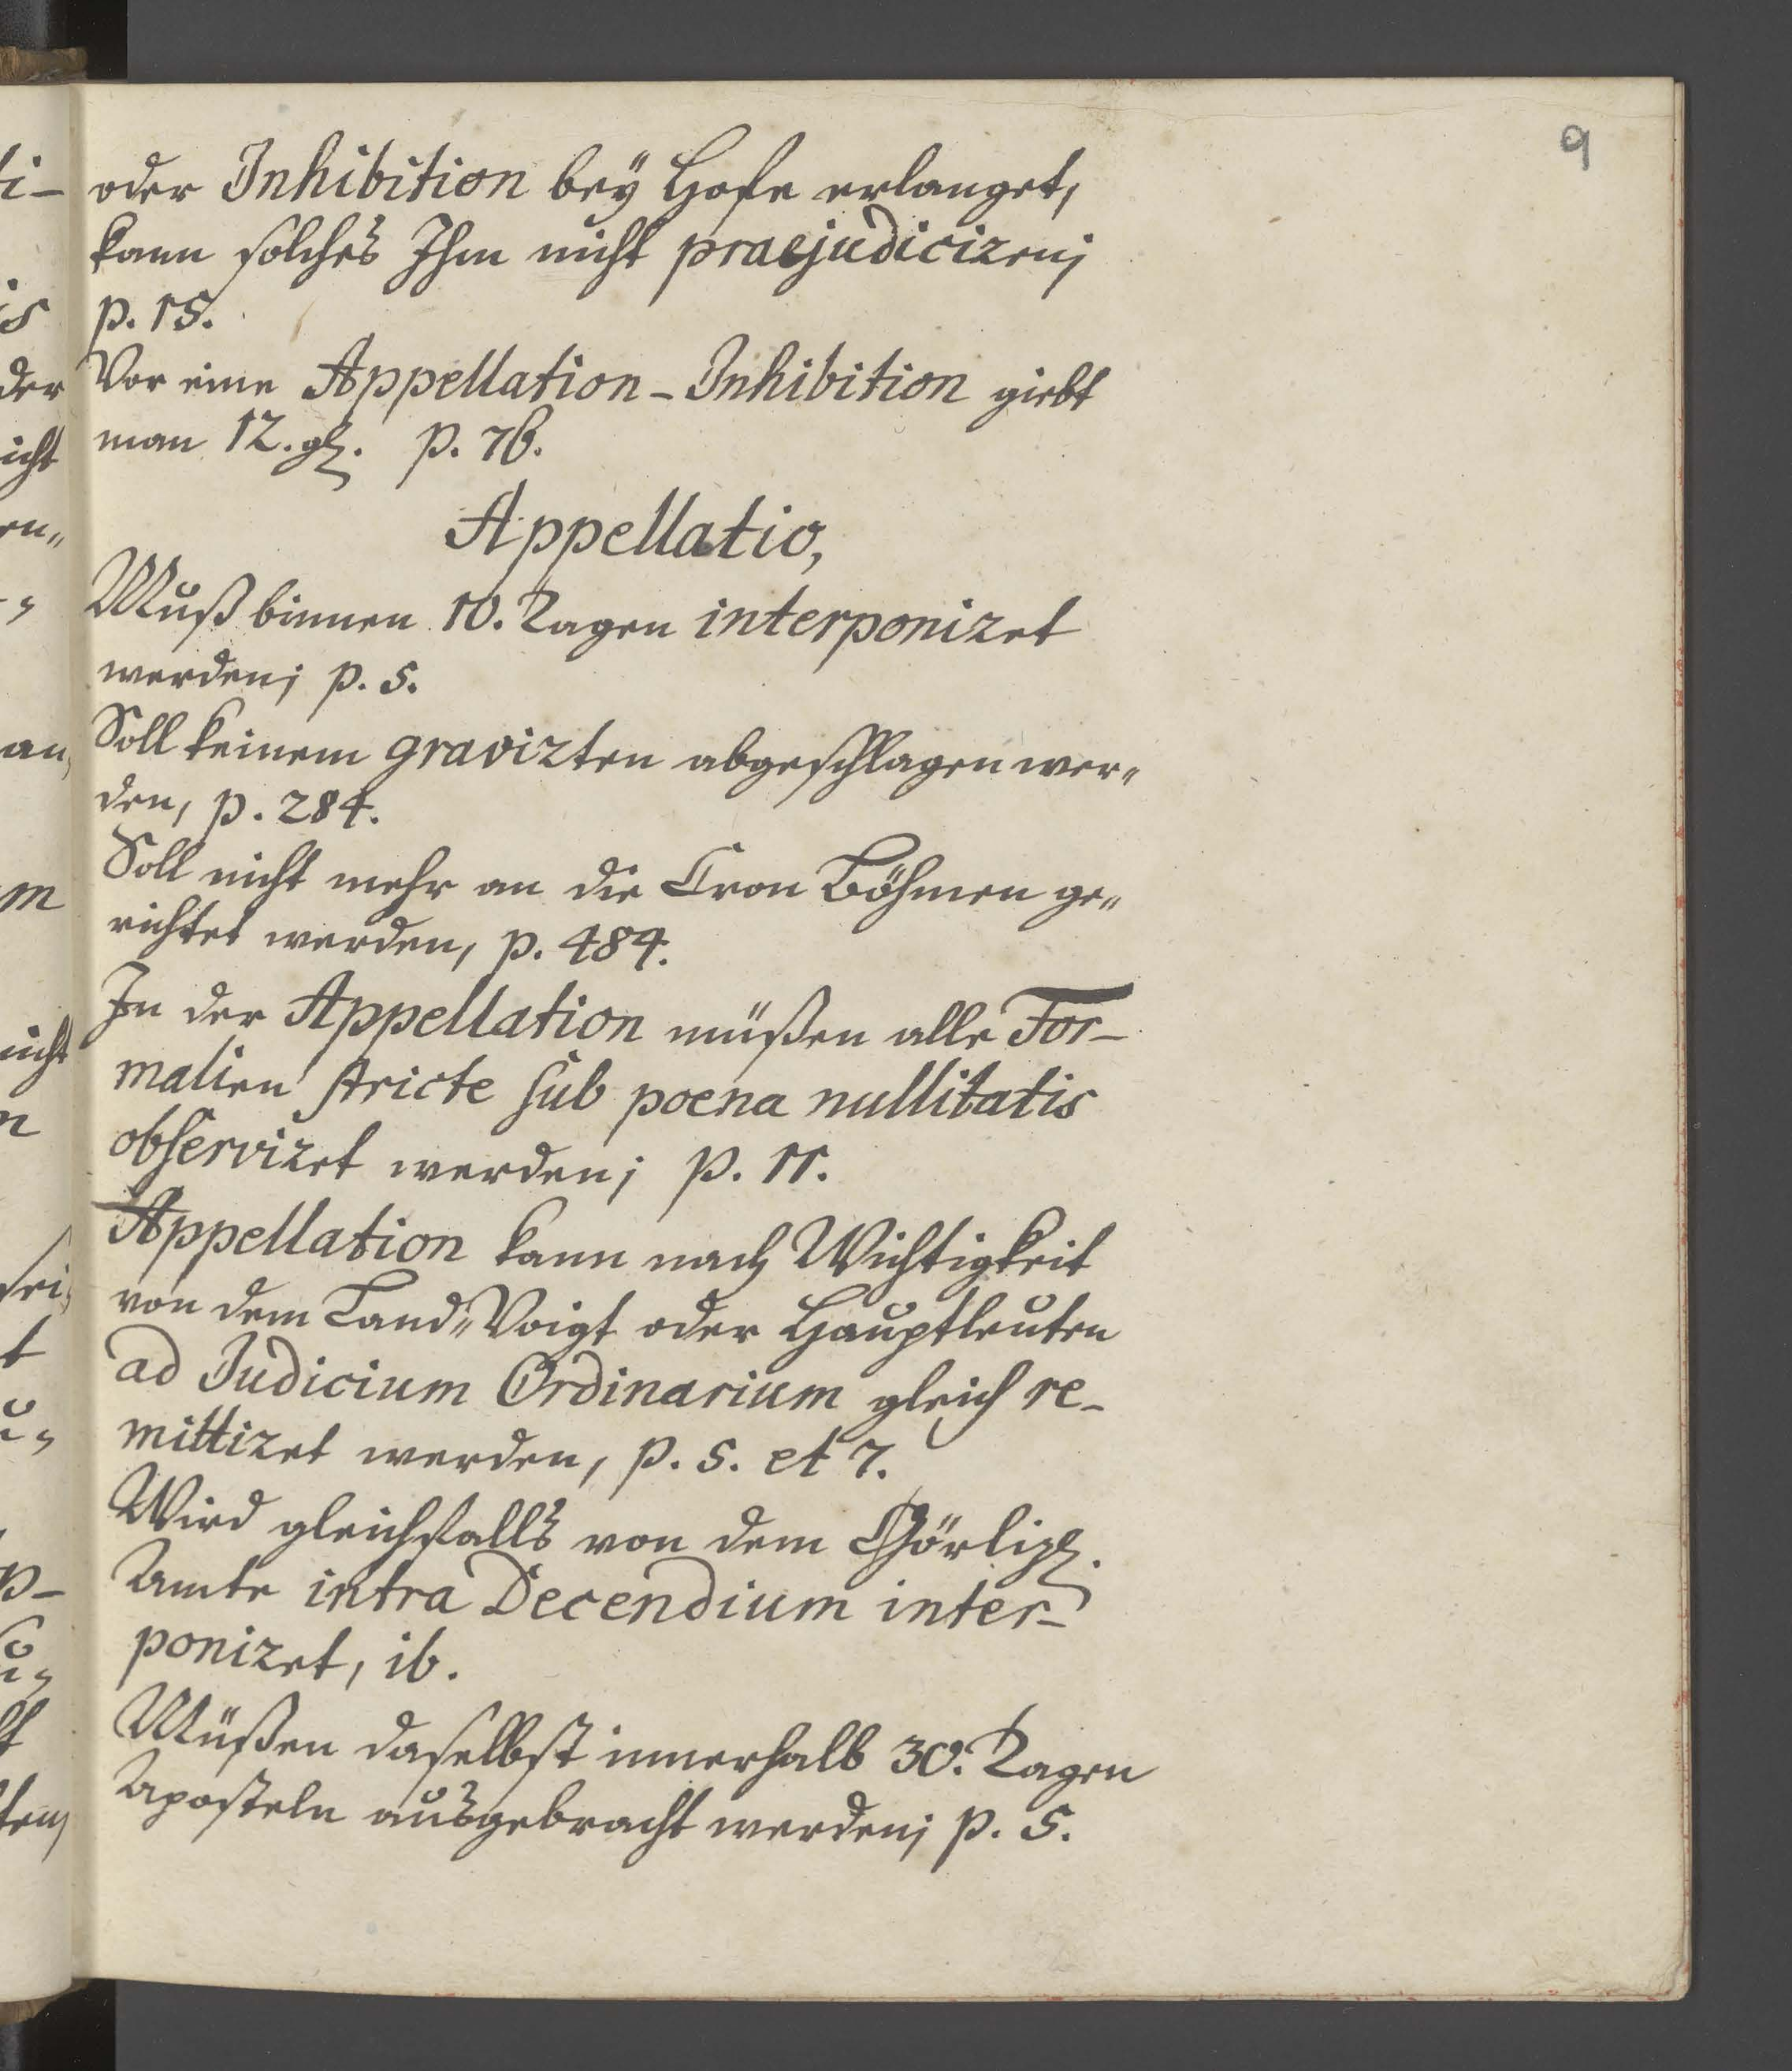 9
oder Inhibition bey Hofe erlanget,
kann solches Ihm nicht praejudiciren;
p. 15.
Vor eine Appellation-Inhibition giebt
man 12. gl. p. 76.
Appellatio,
Muß binnen 10. Tagen interponiret
werden; p. 5.
Soll keinem gravirten abgeschlagen wer„
den, p. 284.
Soll nicht mehr an die Cron Böhmen ge„
richtet werden, p. 484.
In der Appellation müßen alle For-
malien stricte sub poena nullitatis
observiret werden; p. 11.
Appellation kann nach Wichtigkeit
von dem Land„Voigt oder Hauptleuten
ad Judicium Ordinarium gleich re-
mittiret werden, p. 5. et 7.
Wird gleichfalls von dem Görliz.
Amte intra Decendium inter-
poniret, ib.
Müßen daselbst innerhalb 30. Tagen
Aposteln ausgebracht werden; p. 5.